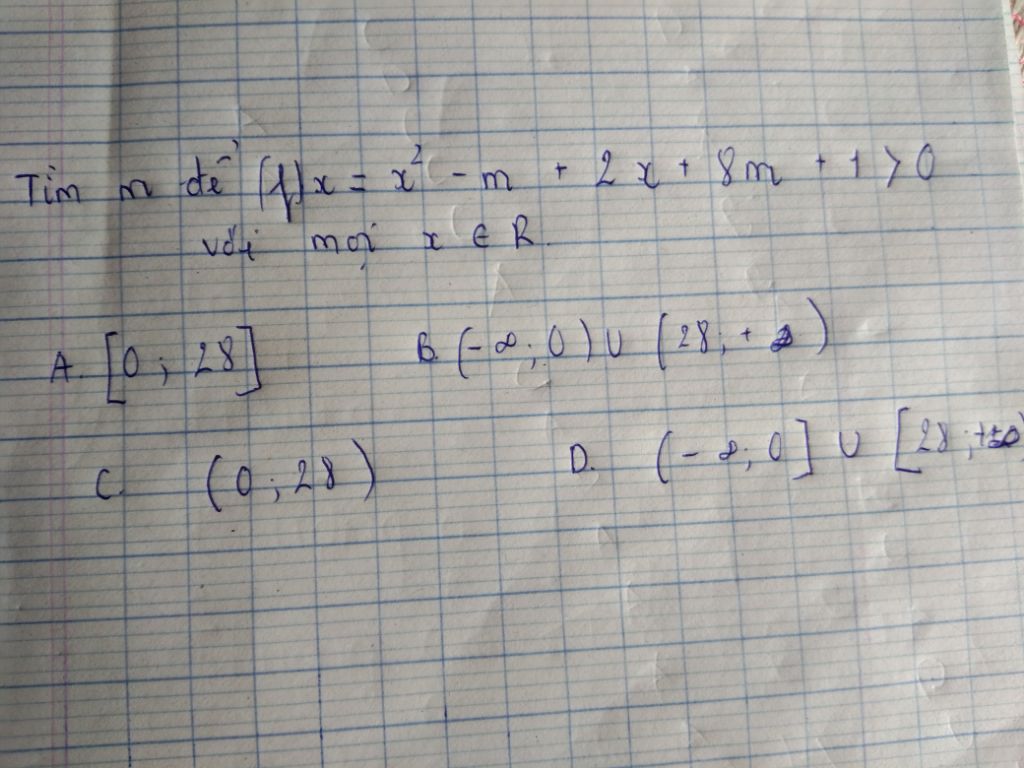 Tìm m để (f)x = x² - m + 2x + 8m + 1 > 0
với mọi x ∈ R.
A. [0; 28] B. (-∞; 0) ∪ (28; +∞)
C. (0; 28) D. (-∞; 0] ∪ [28; +∞)